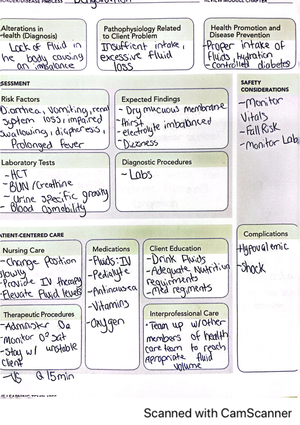 Dehydration
Alterations in
Health (Diagnosis)
Lack of fluid in
the body causing
an imbalance
Pathophysiology Related
to Client Problem
Insufficient intake,
excessive fluid
loss
Health Promotion and
Disease Prevention
-Proper intake of
fluids, hydration
-controlled diabetes
SESSMENT
SAFETY
CONSIDERATIONS
Risk Factors
Diarrhea, vomiting, renal
system loss, impaired
swallowing, diaphoresis,
Prolonged fever
Expected Findings
- Dry mucous membrane
- thirst
- electrolyte imbalanced
- Dizziness
-Monitor
Vitals
- Fall Risk
- Monitor Lab
Laboratory Tests
- HCT
- BUN / Creatinine
- Urine Specific gravity
- Blood osmolality
Diagnostic Procedures
- Labs
ATIENT-CENTERED CARE
Complications
-Hypovolemic
-Shock
Nursing Care
-Change Position
slowly
-Provide IV therapy
-Elevate Fluid levels
Medications
-Fluids: IV
- Pedialyte
- Antinausea
- Vitamins
- Oxygen
Client Education
- Drink Fluids
- Adequate Nutrition
requirments
-med regiments
Therapeutic Procedures
- Administer O2
- Monitor O2 sat
-Stay w/ unstable
client
-VS Q 15min
Interprofessional Care
- Team up w/other
members of health
care team to reach
apropriate fluid
volume
Scanned with CamScanner